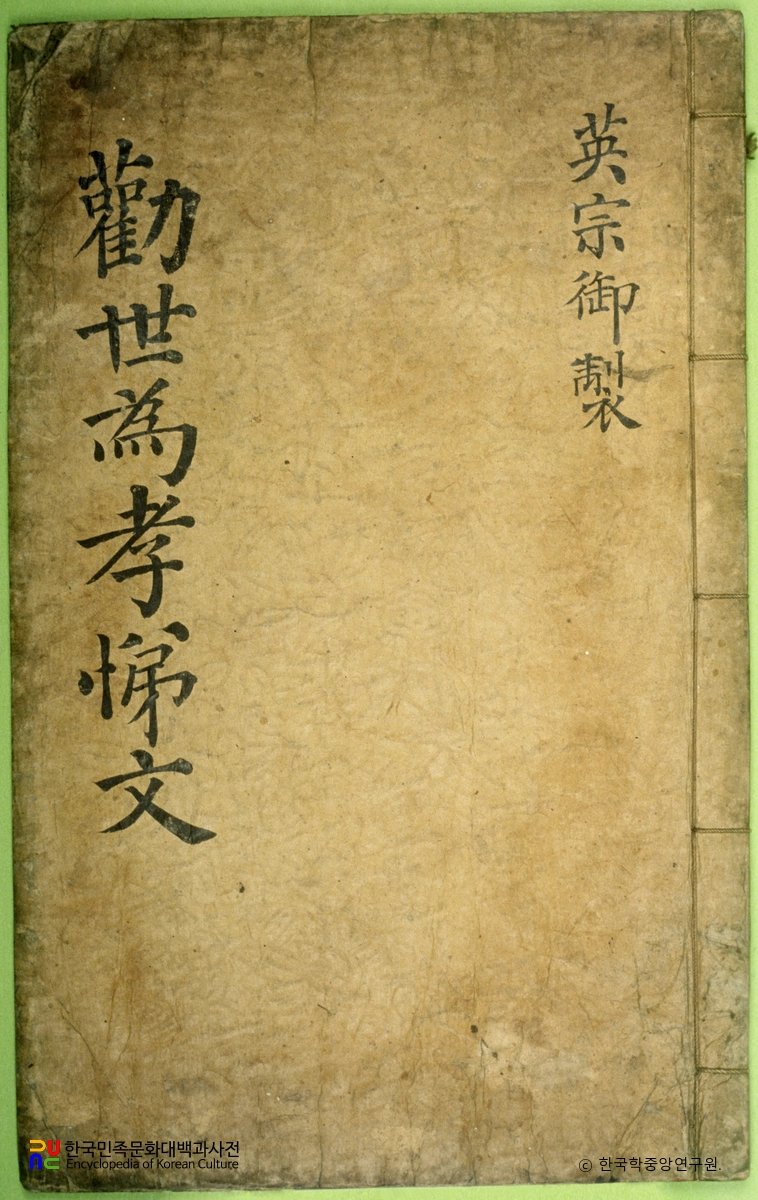 英宗御製
勸世爲孝悌文
한국민족문화대백과사전
Encyclopedia of Korean Culture
© 한국학중앙연구원.